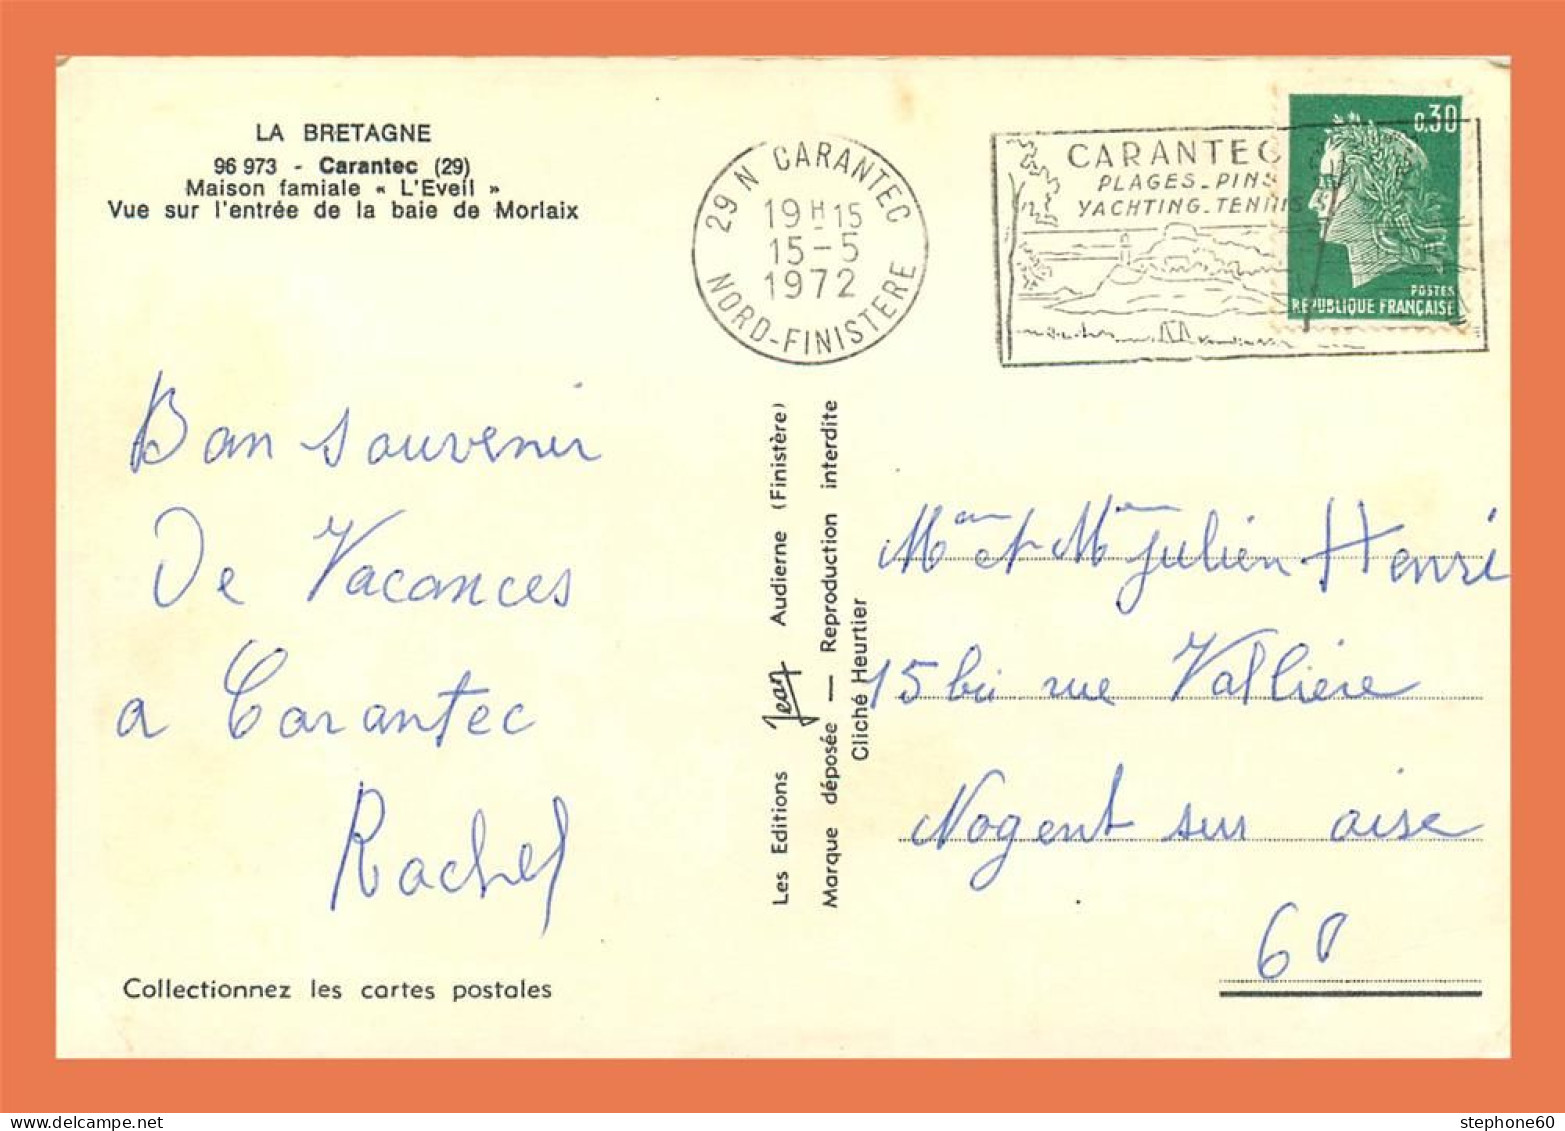 LA BRETAGNE
96 973 - Carantec (29)
Maison famiale « L'Eveil »
Vue sur l'entrée de la baie de Morlaix
29 N CARANTEC
19 H 15
15-5
1972
NORD-FINISTERE
CARANTEC
PLAGES_PINS
YACHTING_TENNIS
0,30
POSTES
REPUBLIQUE FRANÇAISE
Bon souvenir
De Vacances
a Carantec
Rachel
Collectionnez les cartes postales
Les Editions Jean Audierne (Finistère)
Marque déposée — Reproduction interdite
Cliché Heurtier
et Mme Julien Henri
15 bis rue Vallière
Nogent sur oise
60
stephone60